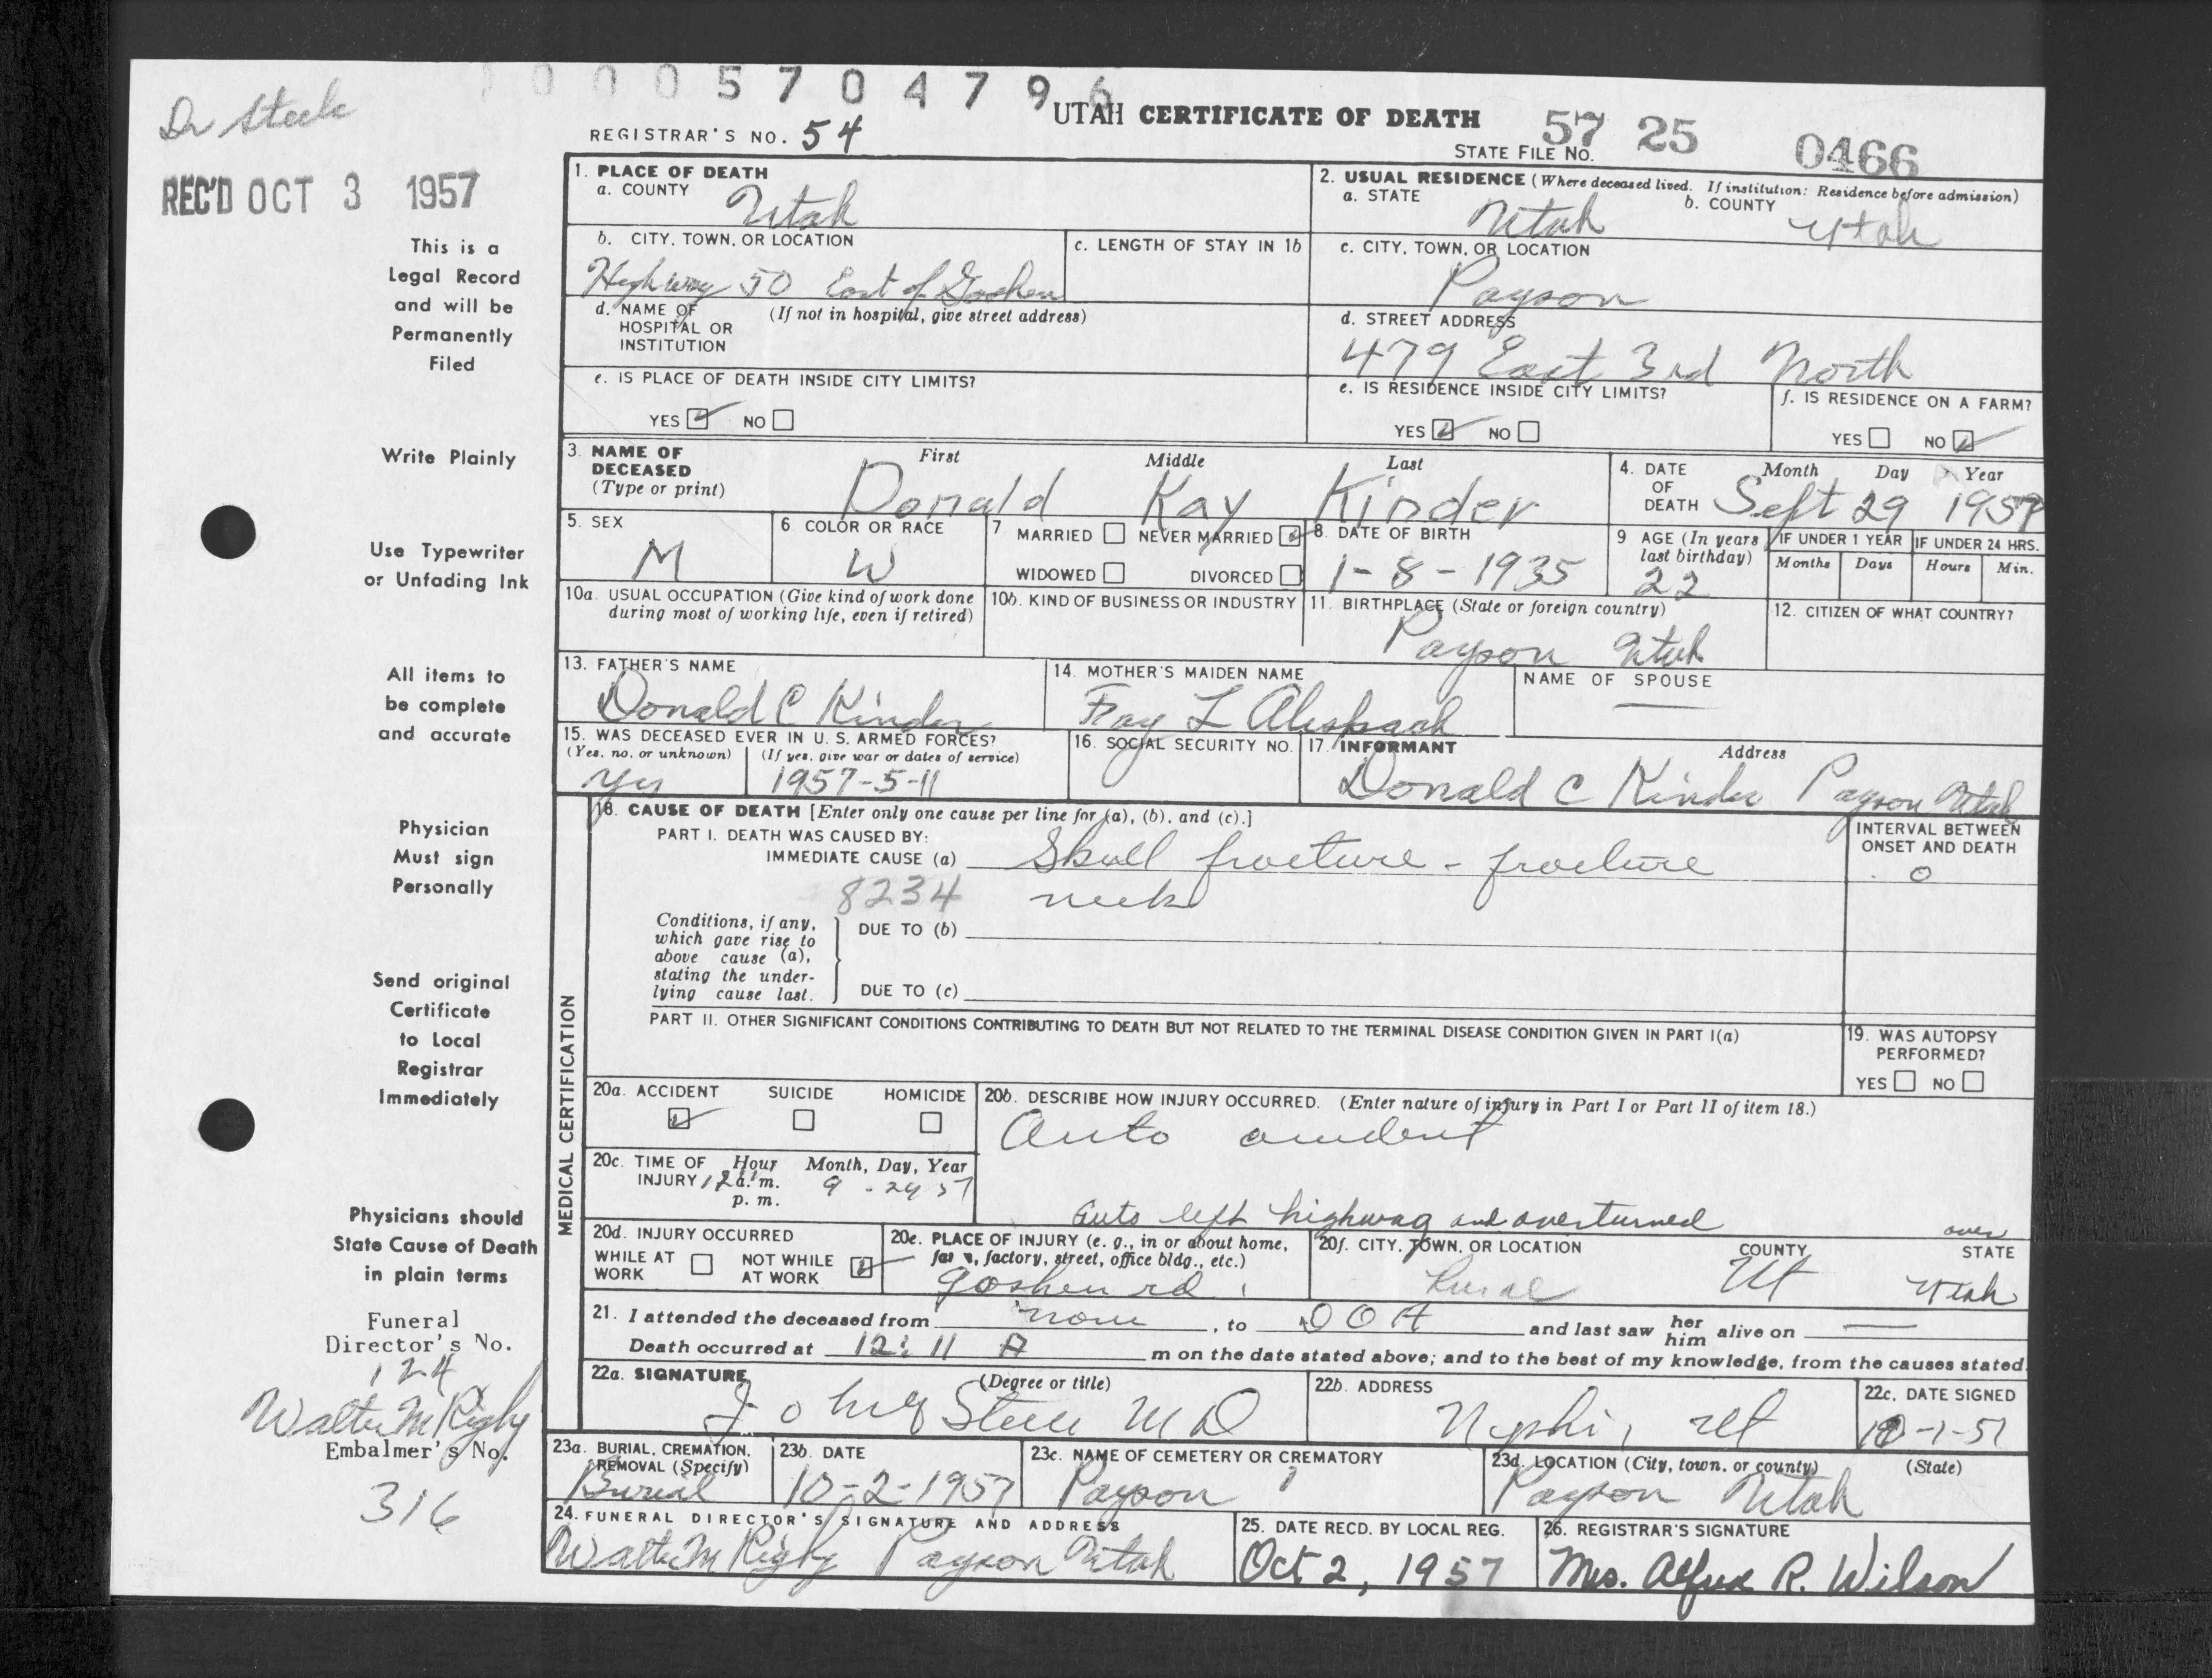 0005704796
Dr Steele
UTAH CERTIFICATE OF DEATH
REGISTRAR'S NO. 54
STATE FILE NO. 57 25 0466
REC'D OCT 3 1957
This is a
Legal Record
and will be
Permanently
Filed
Write Plainly
Use Typewriter
or Unfading Ink
All items to
be complete
and accurate
Physician
Must sign
Personally
Send original
Certificate
to Local
Registrar
Immediately
Physicians should
State Cause of Death
in plain terms
Funeral
Director's No.
124
Walter M Rigby
Embalmer's No.
316
1. PLACE OF DEATH
a. COUNTY Utah
b. CITY, TOWN, OR LOCATION
Highway 50 East of Goshen
c. LENGTH OF STAY IN 1b
d. NAME OF HOSPITAL OR INSTITUTION (If not in hospital, give street address)
e. IS PLACE OF DEATH INSIDE CITY LIMITS?
YES NO
2. USUAL RESIDENCE (Where deceased lived. If institution: Residence before admission)
a. STATE Utah b. COUNTY Utah
c. CITY, TOWN, OR LOCATION
Payson
d. STREET ADDRESS
479 East 3rd North
e. IS RESIDENCE INSIDE CITY LIMITS?
YES NO
f. IS RESIDENCE ON A FARM?
YES NO
3. NAME OF DECEASED (Type or print) First Middle Last
Donald Kay Kinder
4. DATE OF DEATH Month Day Year
Sept 29 1957
5. SEX
M
6. COLOR OR RACE
W
7. MARRIED NEVER MARRIED
WIDOWED DIVORCED
8. DATE OF BIRTH
1-8-1935
9. AGE (In years last birthday)
22
IF UNDER 1 YEAR
Months Days
IF UNDER 24 HRS.
Hours Min.
10a. USUAL OCCUPATION (Give kind of work done during most of working life, even if retired)
10b. KIND OF BUSINESS OR INDUSTRY
11. BIRTHPLACE (State or foreign country)
Payson Utah
12. CITIZEN OF WHAT COUNTRY?
13. FATHER'S NAME
Donald C Kinder
14. MOTHER'S MAIDEN NAME
Fay L
NAME OF SPOUSE
15. WAS DECEASED EVER IN U. S. ARMED FORCES?
(Yes, no, or unknown) (If yes, give war or dates of service)
Yes 1957-5-11
16. SOCIAL SECURITY NO.
17. INFORMANT Address
Donald C Kinder Payson Utah
MEDICAL CERTIFICATION
18. CAUSE OF DEATH [Enter only one cause per line for (a), (b), and (c).]
PART I. DEATH WAS CAUSED BY:
IMMEDIATE CAUSE (a) Skull fracture - fracture
8234 neck
INTERVAL BETWEEN ONSET AND DEATH
0
Conditions, if any, which gave rise to above cause (a), stating the underlying cause last.
DUE TO (b)
DUE TO (c)
PART II. OTHER SIGNIFICANT CONDITIONS CONTRIBUTING TO DEATH BUT NOT RELATED TO THE TERMINAL DISEASE CONDITION GIVEN IN PART I(a)
19. WAS AUTOPSY PERFORMED?
YES NO
20a. ACCIDENT SUICIDE HOMICIDE
20b. DESCRIBE HOW INJURY OCCURRED. (Enter nature of injury in Part I or Part II of item 18.)
Auto accident
Auto left highway and overturned
over
20c. TIME OF INJURY Hour Month, Day, Year
12 a. m. 9 - 29 57
p. m.
20d. INJURY OCCURRED
WHILE AT WORK NOT WHILE AT WORK
20e. PLACE OF INJURY (e. g., in or about home, farm, factory, street, office bldg., etc.)
Goshen rd
20f. CITY, TOWN, OR LOCATION COUNTY STATE
Rural Ut Utah
21. I attended the deceased from none, to DOA and last saw her him alive on —
Death occurred at 12:11 A m on the date stated above; and to the best of my knowledge, from the causes stated.
22a. SIGNATURE (Degree or title)
Steele MD
22b. ADDRESS
Nephi, Ut
22c. DATE SIGNED
10-1-57
23a. BURIAL, CREMATION, REMOVAL (Specify)
Burial
23b. DATE
10-2-1957
23c. NAME OF CEMETERY OR CREMATORY
Payson
23d. LOCATION (City, town, or county) (State)
Payson Utah
24. FUNERAL DIRECTOR'S SIGNATURE AND ADDRESS
Walter M Rigby Payson Utah
25. DATE RECD. BY LOCAL REG.
Oct 2, 1957
26. REGISTRAR'S SIGNATURE
Mrs. Alfred R. Wilson